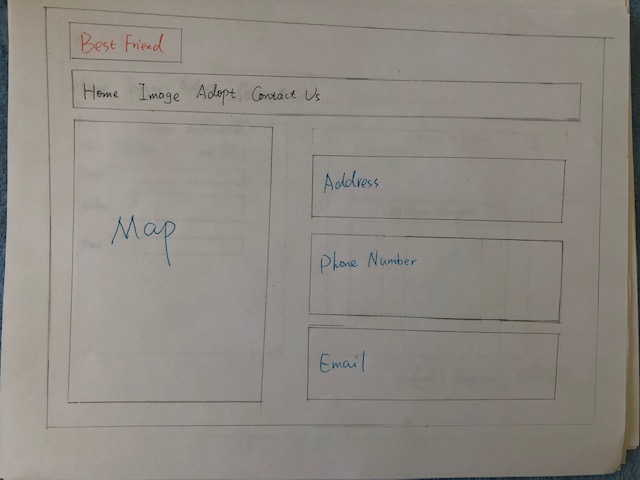 Best Friend
Home Image Adopt Contact Us
Map
Address
Phone Number
Email